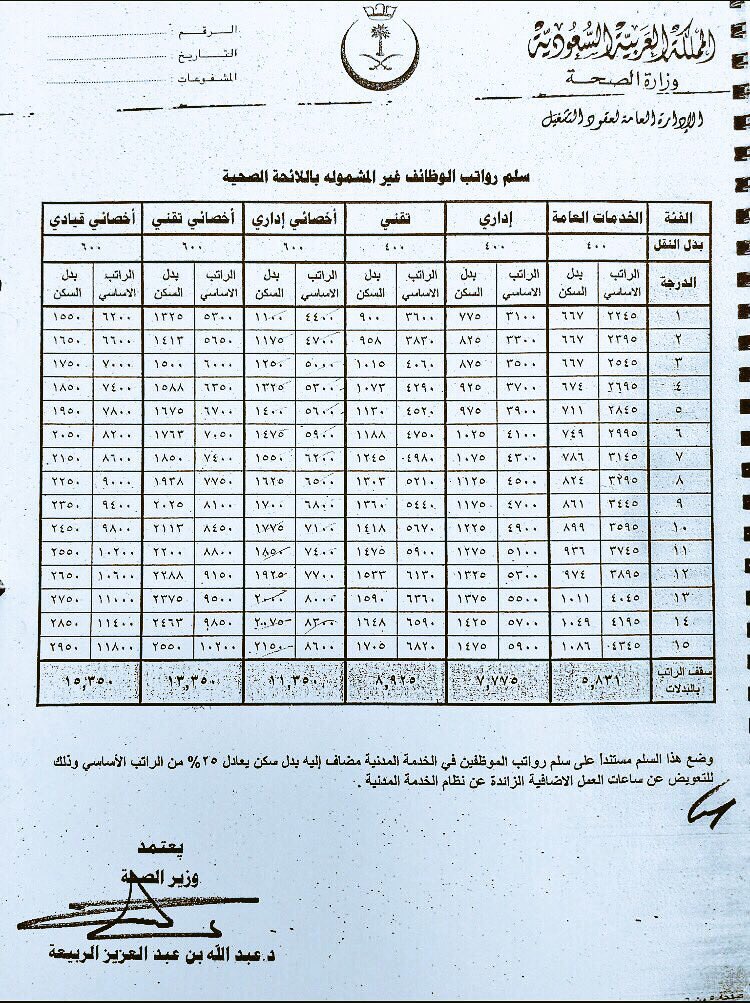 المملكة العربية السعودية
وزارة الصحة
الإدارة العامة لعقود التشغيل
الرقم :
التاريخ :
المشفوعات :
سلم رواتب الوظائف غير المشموله باللائحة الصحية
الفئة الخدمات العامة إداري تقني أخصائي إداري أخصائي تقني أخصائي قيادي
بدل النقل ٤٠٠ ٤٠٠ ٤٠٠ ٦٠٠ ٦٠٠ ٦٠٠
الدرجة الراتب الاساسي بدل السكن الراتب الاساسي بدل السكن الراتب الاساسي بدل السكن الراتب الاساسي بدل السكن الراتب الاساسي بدل السكن الراتب الاساسي بدل السكن
١ ٢٢٤٥ ٦٦٧ ٣١٠٠ ٧٧٥ ٣٦٠٠ ٩٠٠ ٤٤٠٠ ١١٠٠ ٥٣٠٠ ١٣٢٥ ٦٢٠٠ ١٥٥٠
٢ ٢٣٩٥ ٦٦٧ ٣٣٠٠ ٨٢٥ ٣٨٣٠ ٩٥٨ ٤٧٠٠ ١١٧٥ ٥٦٥٠ ١٤١٣ ٦٦٠٠ ١٦٥٠
٣ ٢٥٤٥ ٦٦٧ ٣٥٠٠ ٨٧٥ ٤٠٦٠ ١٠١٥ ٥٠٠٠ ١٢٥٠ ٦٠٠٠ ١٥٠٠ ٧٠٠٠ ١٧٥٠
٤ ٢٦٩٥ ٦٧٤ ٣٧٠٠ ٩٢٥ ٤٢٩٠ ١٠٧٣ ٥٣٠٠ ١٣٢٥ ٦٣٥٠ ١٥٨٨ ٧٤٠٠ ١٨٥٠
٥ ٢٨٤٥ ٧١١ ٣٩٠٠ ٩٧٥ ٤٥٢٠ ١١٣٠ ٥٦٠٠ ١٤٠٠ ٦٧٠٠ ١٦٧٥ ٧٨٠٠ ١٩٥٠
٦ ٢٩٩٥ ٧٤٩ ٤١٠٠ ١٠٢٥ ٤٧٥٠ ١١٨٨ ٥٩٠٠ ١٤٧٥ ٧٠٥٠ ١٧٦٣ ٨٢٠٠ ٢٠٥٠
٧ ٣١٤٥ ٧٨٦ ٤٣٠٠ ١٠٧٥ ٤٩٨٠ ١٢٤٥ ٦٢٠٠ ١٥٥٠ ٧٤٠٠ ١٨٥٠ ٨٦٠٠ ٢١٥٠
٨ ٣٢٩٥ ٨٢٤ ٤٥٠٠ ١١٢٥ ٥٢١٠ ١٣٠٣ ٦٥٠٠ ١٦٢٥ ٧٧٥٠ ١٩٣٨ ٩٠٠٠ ٢٢٥٠
٩ ٣٤٤٥ ٨٦١ ٤٧٠٠ ١١٧٥ ٥٤٤٠ ١٣٦٠ ٦٨٠٠ ١٧٠٠ ٨١٠٠ ٢٠٢٥ ٩٤٠٠ ٢٣٥٠
١٠ ٣٥٩٥ ٨٩٩ ٤٩٠٠ ١٢٢٥ ٥٦٧٠ ١٤١٨ ٧١٠٠ ١٧٧٥ ٨٤٥٠ ٢١١٣ ٩٨٠٠ ٢٤٥٠
١١ ٣٧٤٥ ٩٣٦ ٥١٠٠ ١٢٧٥ ٥٩٠٠ ١٤٧٥ ٧٤٠٠ ١٨٥٠ ٨٨٠٠ ٢٢٠٠ ١٠٢٠٠ ٢٥٥٠
١٢ ٣٨٩٥ ٩٧٤ ٥٣٠٠ ١٣٢٥ ٦١٣٠ ١٥٣٣ ٧٧٠٠ ١٩٢٥ ٩١٥٠ ٢٢٨٨ ١٠٦٠٠ ٢٦٥٠
١٣ ٤٠٤٥ ١٠١١ ٥٥٠٠ ١٣٧٥ ٦٣٦٠ ١٥٩٠ ٨٠٠٠ ٢٠٠٠ ٩٥٠٠ ٢٣٧٥ ١١٠٠٠ ٢٧٥٠
١٤ ٤١٩٥ ١٠٤٩ ٥٧٠٠ ١٤٢٥ ٦٥٩٠ ١٦٤٨ ٨٣٠٠ ٢٠٧٥ ٩٨٥٠ ٢٤٦٣ ١١٤٠٠ ٢٨٥٠
١٥ ٤٣٤٥ ١٠٨٦ ٥٩٠٠ ١٤٧٥ ٦٨٢٠ ١٧٠٥ ٨٦٠٠ ٢١٥٠ ١٠٢٠٠ ٢٥٥٠ ١١٨٠٠ ٢٩٥٠
سقف الراتب بالبدلات ٥,٨٣١ ٧,٧٧٥ ٨,٩٢٥ ١١,٣٥٠ ١٣,٣٥٠ ١٥,٣٥٠
وضع هذا السلم مستنداً على سلم رواتب الموظفين في الخدمة المدنية مضاف إليه بدل سكن يعادل ٢٥% من الراتب الأساسي وذلك
للتعويض عن ساعات العمل الاضافية الزائدة عن نظام الخدمة المدنية .
يعتمد
وزير الصحة
د.عبد الله بن عبد العزيز الربيعة